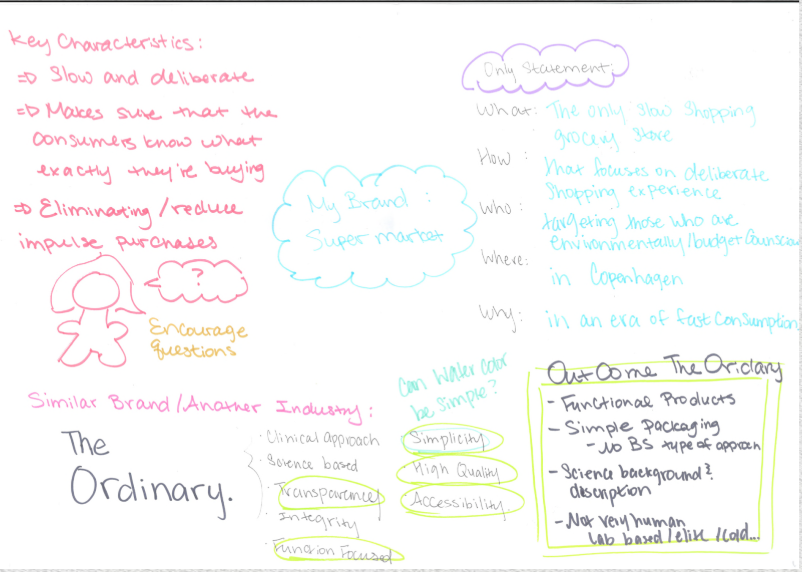 Key Characteristics:
=> Slow and deliberate
=> Makes sure that the
consumers know what
exactly they're buying
=> Eliminating/reduce
impulse purchases
?
Encourage
questions
My Brand:
Supermarket
Only Statement:
What: The only slow shopping
grocery store
How: that focuses on deliberate
shopping experience
Who: targeting those who are
environmentally/budget
Where: in Copenhagen
Why: in an era of fast consumption
Similar Brand/Another Industry:
The
Ordinary.
· Clinical approach
· Science based
· Transparency
· Integrity
· Function Focused
Can Water color
be simple?
Simplicity
· High Quality
· Accessibility.
OutCome The
- Functional Products
- Simple packaging
- No BS type of
- Science background?
- Not very human
Lab based/elite/cold...